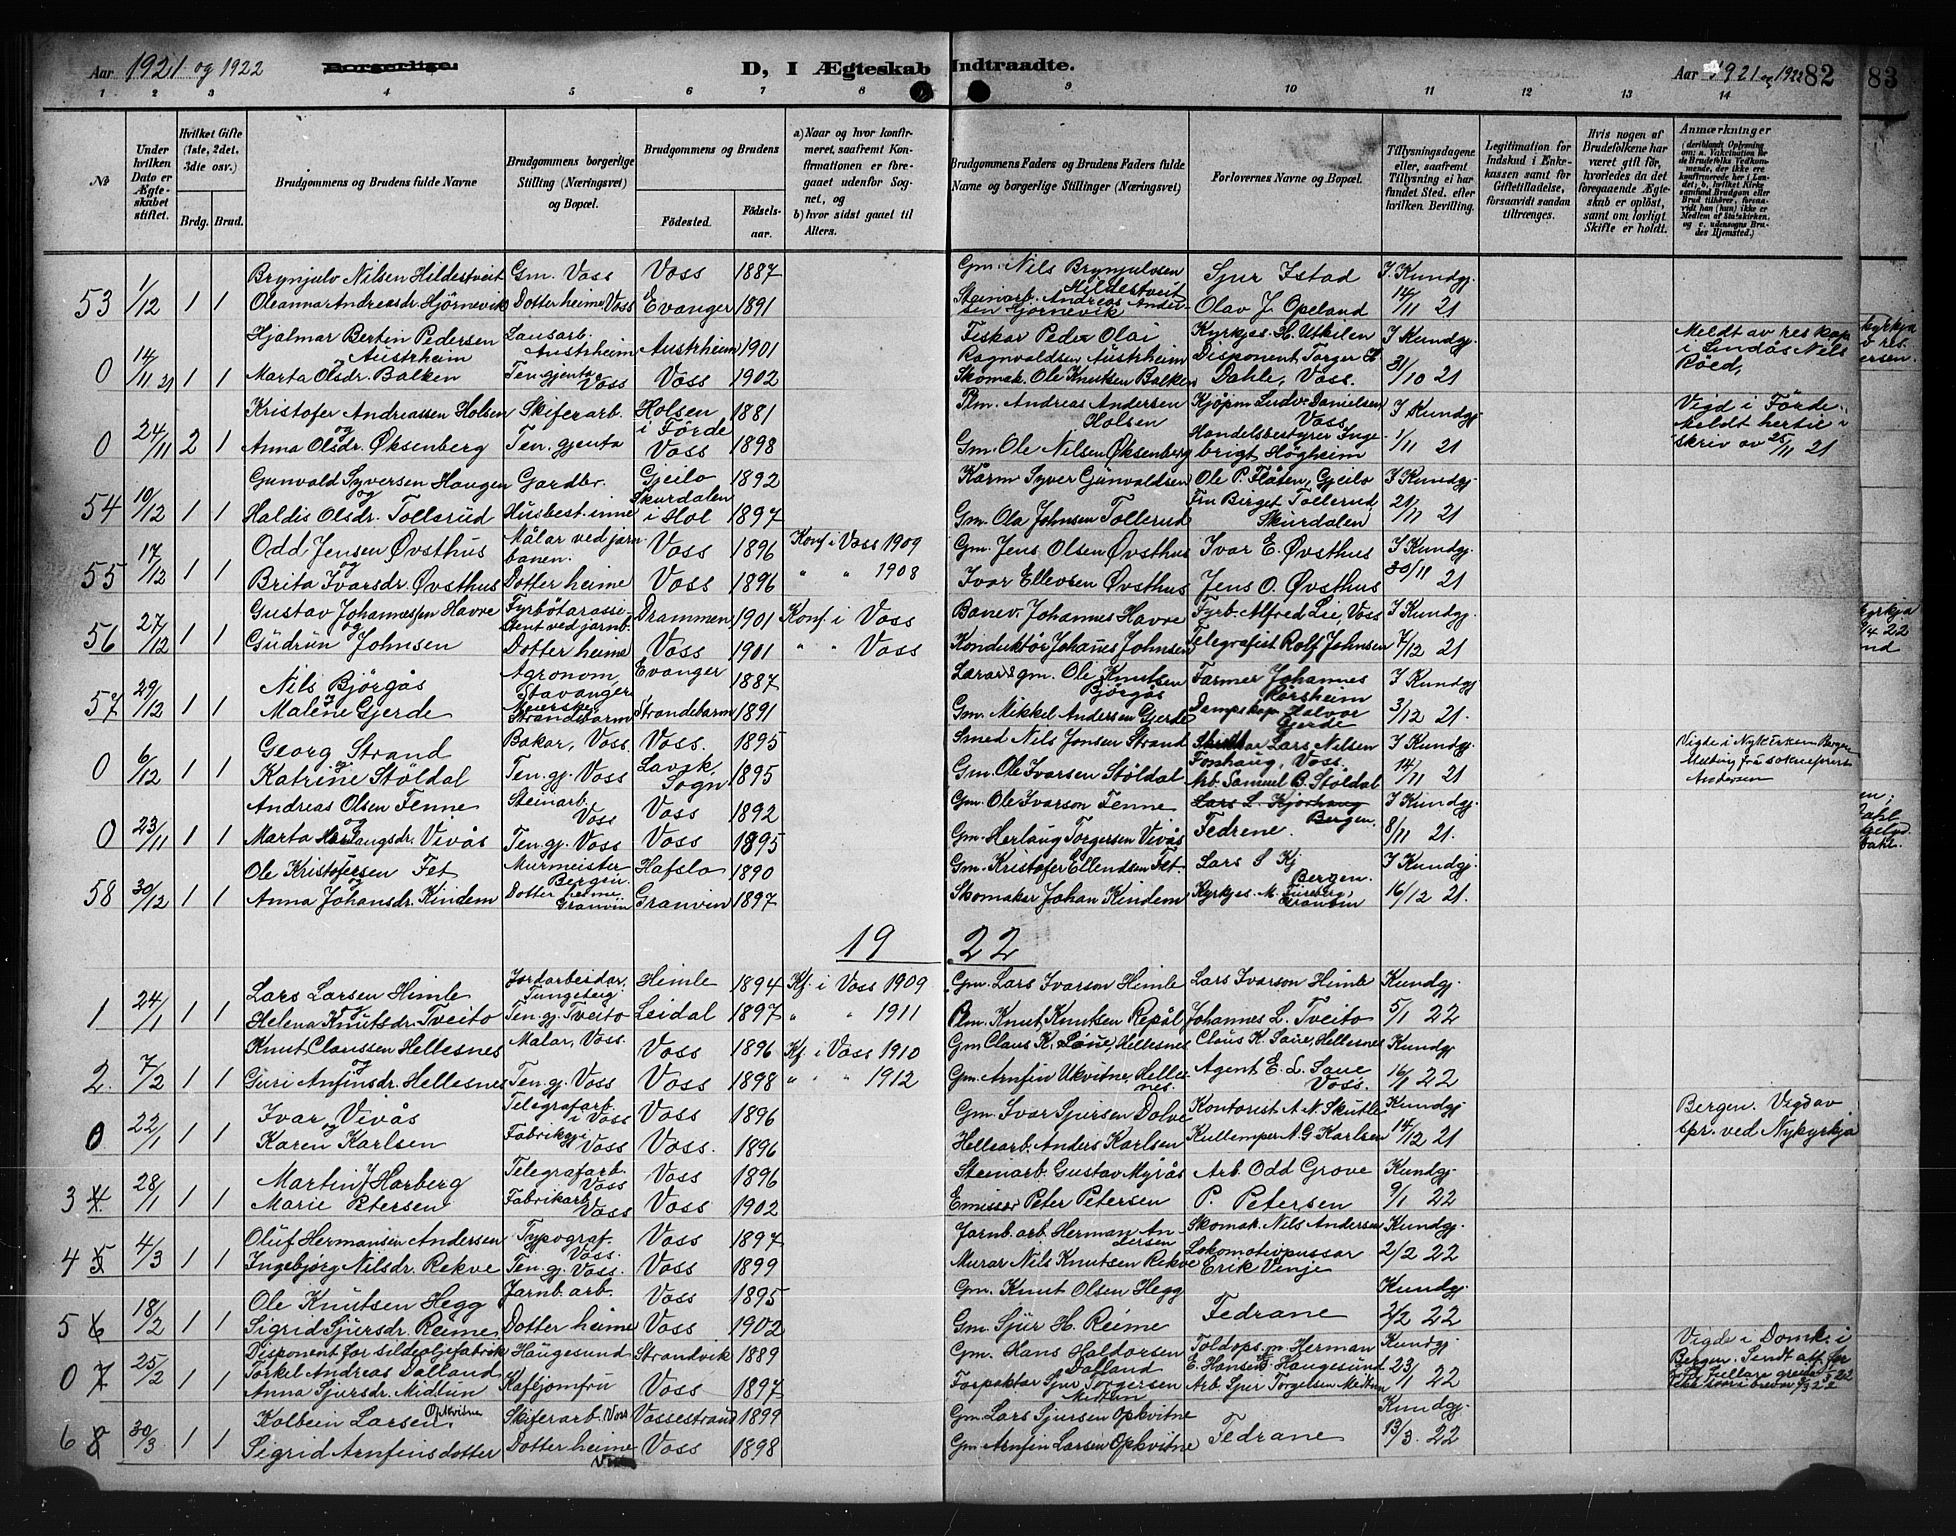 Aar 1921 og 1922
Borgerlige.
D, I Ægteskab Indtraadte.
Aar 1921 og 1922 82
83
1 2 3 4 5 6 7 8 9 10 11 12 13 14
No
Under hvilken Dato er Ægteskabet stiftet.
Hvilket Gifte (1ste, 2det, 3die osv.)
Brdg. Brud.
Brudgommens og Brudens fulde Navne
Brudgommens borgerlige Stilling (Næringsvei) og Bopæl.
Brudgommens og Brudens
Fødested.
Fødselsaar.
a) Naar og hvor konfirmeret, saafremt Konfirmationen er foregaaet udenfor Sognet, og
b) hvor sidst gaaet til Alters.
Brudgommens Faders og Brudens Faders fulde Navne og borgerlige Stillinger (Næringsvei)
Forlovernes Navne og Bopæl.
Tillysningsdagene eller, saafremt Tillysning ei har fundet Sted, efter hvilken Bevilling.
Legitimation for Indskud i Enkekassen samt for Giftetilladelse, forsaavidt saadan tiltrænges.
Hvis nogen af Brudefolkene har været gift før, hvorledes da det foregaaende Ægteskab er opløst, samt om lovligt Skifte er holdt.
Anmærkninger
53 1/12 1 1 Brynjulv Nilsen Hildestveit Gm. Voss Voss 1887 Gm. Nils Brynjulvsen Hildestveit Sjur Istad I Kundgj.
Oleanna Andreasdr. Hjørnevik Dotter heime Voss Evanger 1891 Steinarb. Andreas Andersen Hjørnevik Olav J. Opeland 14/11 21
0 14/11 21 1 1 Hjalmar Bertin Pedersen Austrheim Lausarb. Austrheim Austrheim 1901 Fiskar Peder Olai Ragnvaldsen Austrheim Kyrkjes. H. Utkilen I Kundgj. Meldt av res. kap. i Lindås Nils Röed,
og
Marta Olsdr. Balken Ten.gjenta Voss Voss 1902 Skomak. Ole Knutsen Balken Disponent Torger H. Dahle, Voss. 31/10 21
0 24/11 2 1 Kristofer Andreassen Holsen Skiferarb. Holsen i Förde 1881 Plm. Andreas Andersen Holsen Kjöpm. Ludv. Danielsen Voss I Kundgj. Vigd i Förde. Meldt hertil i skriv av 25/11 21
og
Anna Olsdr. Øksenberg Ten. gjenta Voss 1898 Gm. Ole Nilsen Øksenberg Handelsbestyrer Ingebrigt Högheim 1/11 21
54 10/12 1 1 Gunvald Syversen Haugen Gardbr. Gjeilo 1892 Kårm. Syver Gunvaldsen Ole P. Flåten, Gjeilo I Kundgj.
og
Haldis Olsdr. Tollerud Husbest.inne Skurdalen i Hol 1897 Gm. Ola Johnsen Tollerud Fru Birget Tollerud Skurdalen 21/11 21
55 17/12 1 1 Odd Jensen Øvsthus Målar ved jarnbanen. Voss 1896 Konf. i Voss 1909 Gm. Jens Olsen Øvsthus Ivar E. Øvsthus I Kundgj.
og
Brita Ivarsdr. Øvsthus Dotter heime Voss 1896 " " 1908 Ivar Ellevsen Øvsthus Jens O. Øvsthus 30/11 21
56 27/12 1 1 Gustav Johannessen Havre Fyrbötarassistent ved jarnb. Drammen 1901 Konf. i Voss Banev. Johannes Havre Fyrb. Alfred Lie, Voss I Kundgj.
og
Gudrun Johnsen Dotter heime Voss 1901 " " Voss Konduktör Johanes Johnsen Telegrafist Rolf Johnsen 7/12 21
57 29/12 1 1 Nils Björgås Agronom, Stavanger Evanger 1887 Lærar & gm. Ole Knutsen Björgås Farmer Johannes Rörsheim I Kundgj.
Malene Gjerde Meierske, Strandebarm Strandebarm 1891 Gm. Mikkel Andersen Gjerde Dampskap. Halvor Gjerde 3/12 21.
0 6/12 1 1 Georg Strand Bakar, Voss. Voss. 1895 Smed Nils Jonsen Strand Lars Nilsen Fonhaug, Voss. I Kundgj. Vigde i Nykirken Bergen Melding frå soknepresten Andersen
og
Katrine Stöldal Ten. gj. Voss Lavik, Sogn 1895 Gm. Ole Ivarsen Stöldal Arb. Samuel B. Stöldal 14/11 21
0 23/11 1 1 Andreas Olsen Tenne Steinarb. Voss Voss 1892 Gm. Ole Ivarson Tenne Lars L. Kjorhaug Bergen. I Kundgj
og
Marta Herlaugsdr. Vivås Ten. gj. Voss Voss 1895 Gm. Herlaug Torgersen Vivås Fedrene. 8/11 21.
58 30/12 1 1 Ole Kristofersen Fet Murmeister Bergen. Hafslo 1890 Gm. Kristofer Ellendsen Fet Lars S Kj Bergen. I Kundgj.
og
Anna Johansdr. Kindem Dotter heime Granvin Granvin 1897 Skomaker Johan Kindem Kyrkjes. M. Fureberg, Granvin 16/12 21.
19 22
1 24/1 1 1 Lars Larsen Himle Jordarbeidar, Himle 1894 Kf. i Voss 1909 Gm. Lars Ivarson Himle Lars Ivarson Himle Kundgj.
og
Helena Knutsdr. Tveito Ten. gj. Tveito Leidal 1897 " " 1911 Plm. Knut Knutsen Repål Johannes L. Tveito 5/1 22
2. 7/2 1 1 Knut Claussen Hellesnes Malar, Voss. Voss 1896 Kf. i Voss 1910 Gm Claus K. Saue, Hellesnes Claus K. Saue, Hellesnes Kundgj
og
Guri Anfinsdr. Hellesnes Ten. gj. Voss Voss 1898 " " 1912 Gm. Arnfin Ukvitne, Hellesnes. Agent E. L. Saue Voss. 16/1 22
0 22/1 1 1 Ivar Vivås Telegrafarb. i Voss Voss 1896 Gm. Ivar Sjursen Dolve Kontorist A. N. Skutle Kundgj. Bergen. Vigd av spr. ved Nykyrkja
og
Karen Karlsen Fabrikgj. i Voss Voss. 1896 Hellearb. Anders Karlsen Kullemper A. G. Karlsen 14/12 21
3 4 28/1 1 1 Martin J Horberg Telegrafarb. Voss Voss 1896 Steinarb. Gustav Myrås Arb. Odd Grove Kundgj.
Marie Petersen Fabrikarb. Voss Voss 1902 Emissær Peter Petersen P. Petersen 9/1 22
4 5 4/3 1 1 Oluf Hermansen Andersen Typograf. Voss. Voss 1897 Jarnb. arb. Herman Andersen Skomak. Nils Andersen Kundgj.
Ingebjørg Nilsdr. Rekve Ten. gj. Voss. Voss 1899 Murar Nils Knutsen Rekve Lokomotivpussar Erik Vinje 2/2 22
5 6 18/2 1 1 Ole Knutsen Hegg Jarnb. arb. Voss 1895 Gm. Knut Olsen Hegg Fedrane Kundgj.
Sigrid Sjursdr. Reime Dotter heime Voss 1902 Gm. Sjur H. Reime 2/2 22
0 7 25/2 1 1 Disponent for sildoljefabrik Haugesund Strandvik 1889 Gm. Hans Haldorsen Dalland Toldops.m. Herman E. Hansen Haugesund Kundgj Vigde i Domk. i Bergen.
Torkel Andreas Dalland
Anna Sjursdr. Midtun Kafejomfru Voss 1897 Forpaktar Sjur Torgersen Midtun Arb. Sjur Torgelsen Midtun 23/1 22
6 8 30/3 1 1 Kolbein Larsen Opkvitne. Skiferarb. Voss Vossestrand 1899 Gm. Lars Sjursen Opkvitne Fedrane Kundgj.
Sigrid Arnfinsdotter Dotter heime Voss Voss 1898 Gm. Arnfin Larsen Opkvitne 13/3. 22